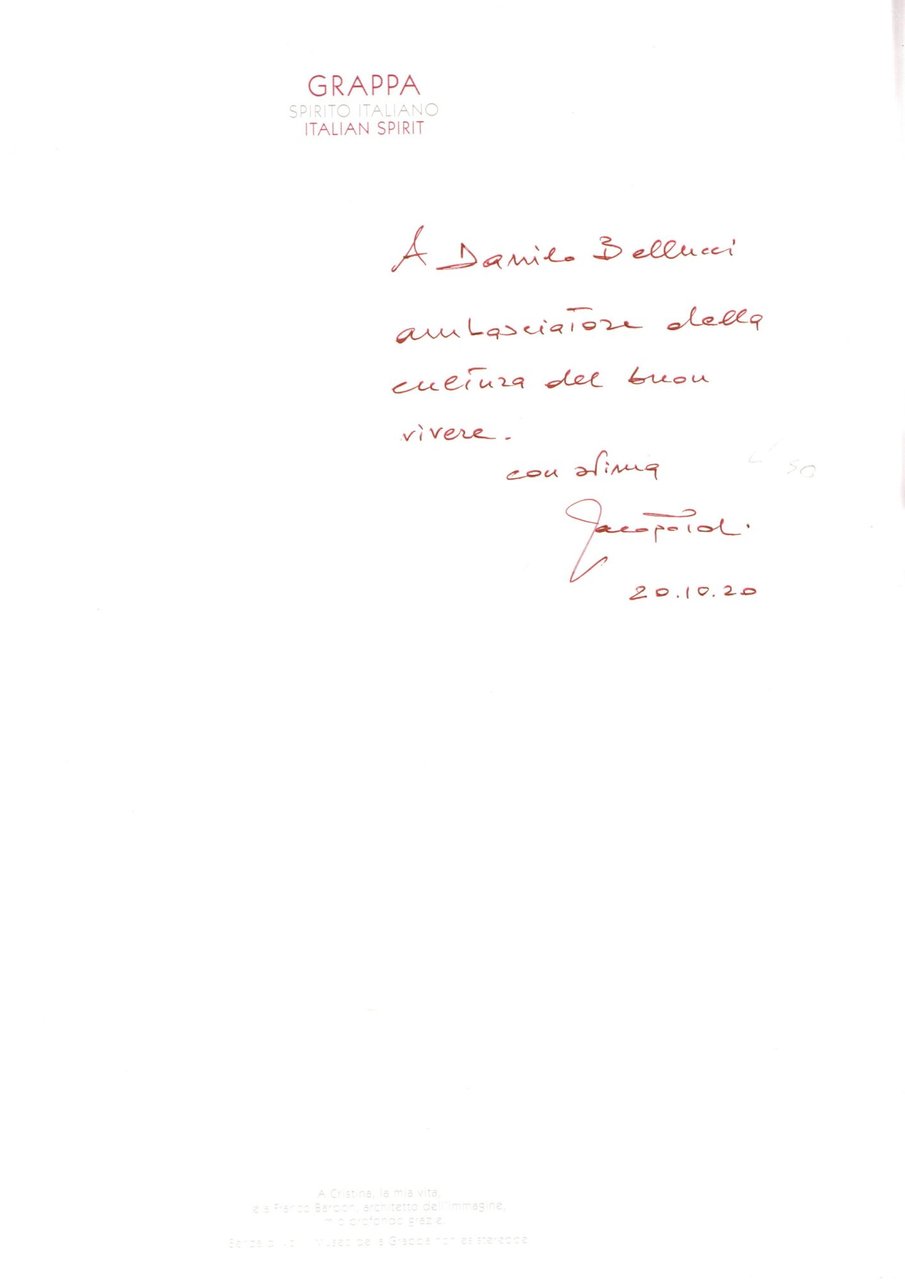 GRAPPA
SPIRITO ITALIANO
ITALIAN SPIRIT
A Danilo Bellucci
ambasciatore della
cultura del buon
vivere.
con stima
20.10.20
A Cristina, la mia vita,
e a Franco architetto dell'immagine,
mio profondo grazie.
Museo della Grappa non esisterebbe